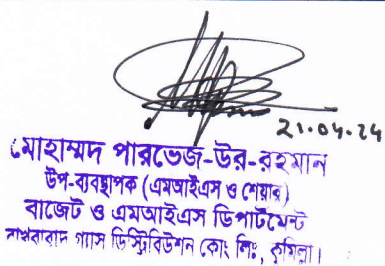 ২১.০৭.২৪
মোহাম্মদ পারভেজ-উর-রহমান
উপ-ব্যবস্থাপক (এমআইএস ও শেয়ার)
বাজেট ও এমআইএস ডিপার্টমেন্ট
বাখরাবাদ গ্যাস ডিস্ট্রিবিউশন কোং লিঃ, কুমিল্লা।